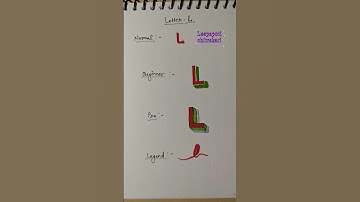 Letter - L
Normal :-
L
Leepapoti
chitrakari
Beginner :-
L
Pro :-
L
Legend :-
L